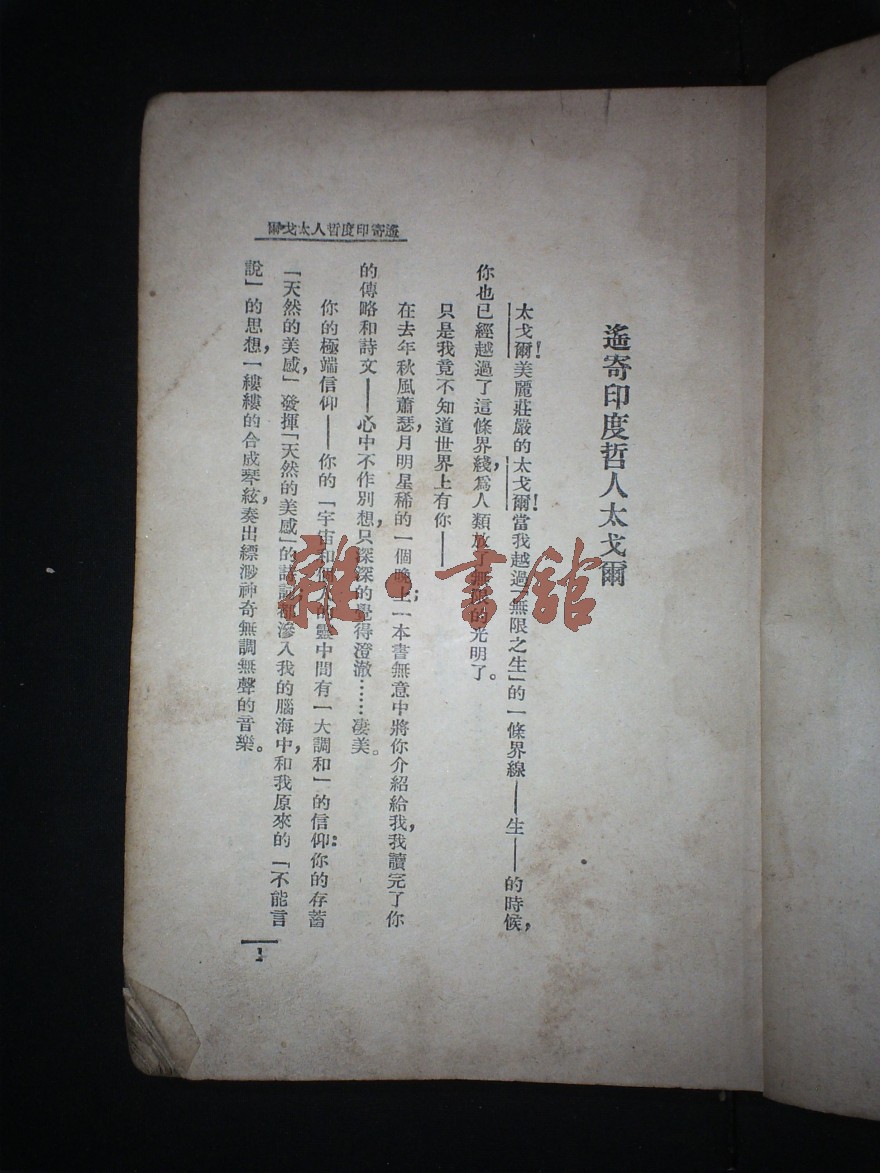 遙寄印度哲人太戈爾
太戈爾！美麗莊嚴的太戈爾！當我越過「無限之生」的一條界線——生——的時候，
你也已經越過了這條界綫，爲人類放了無限的光明了。
只是我竟不知道世界上有你——
在去年秋風蕭瑟，月明星稀的一個晚上；一本書無意中將你介紹給我，我讀完了你
的傳略和詩文——心中不作別想，只深深的覺得澄澈……凄美。
你的極端信仰——你的「宇宙和個人的靈中間有一大調和」的信仰：你的存蓄
「天然的美感」，發揮「天然的美感」的詩詞，都滲入我的腦海中，和我原來的「不能言
說」的思想，一縷縷的合成琴絃，奏出縹渺神奇無調無聲的音樂。
遙寄印度哲人太戈爾
1
雜·書舘